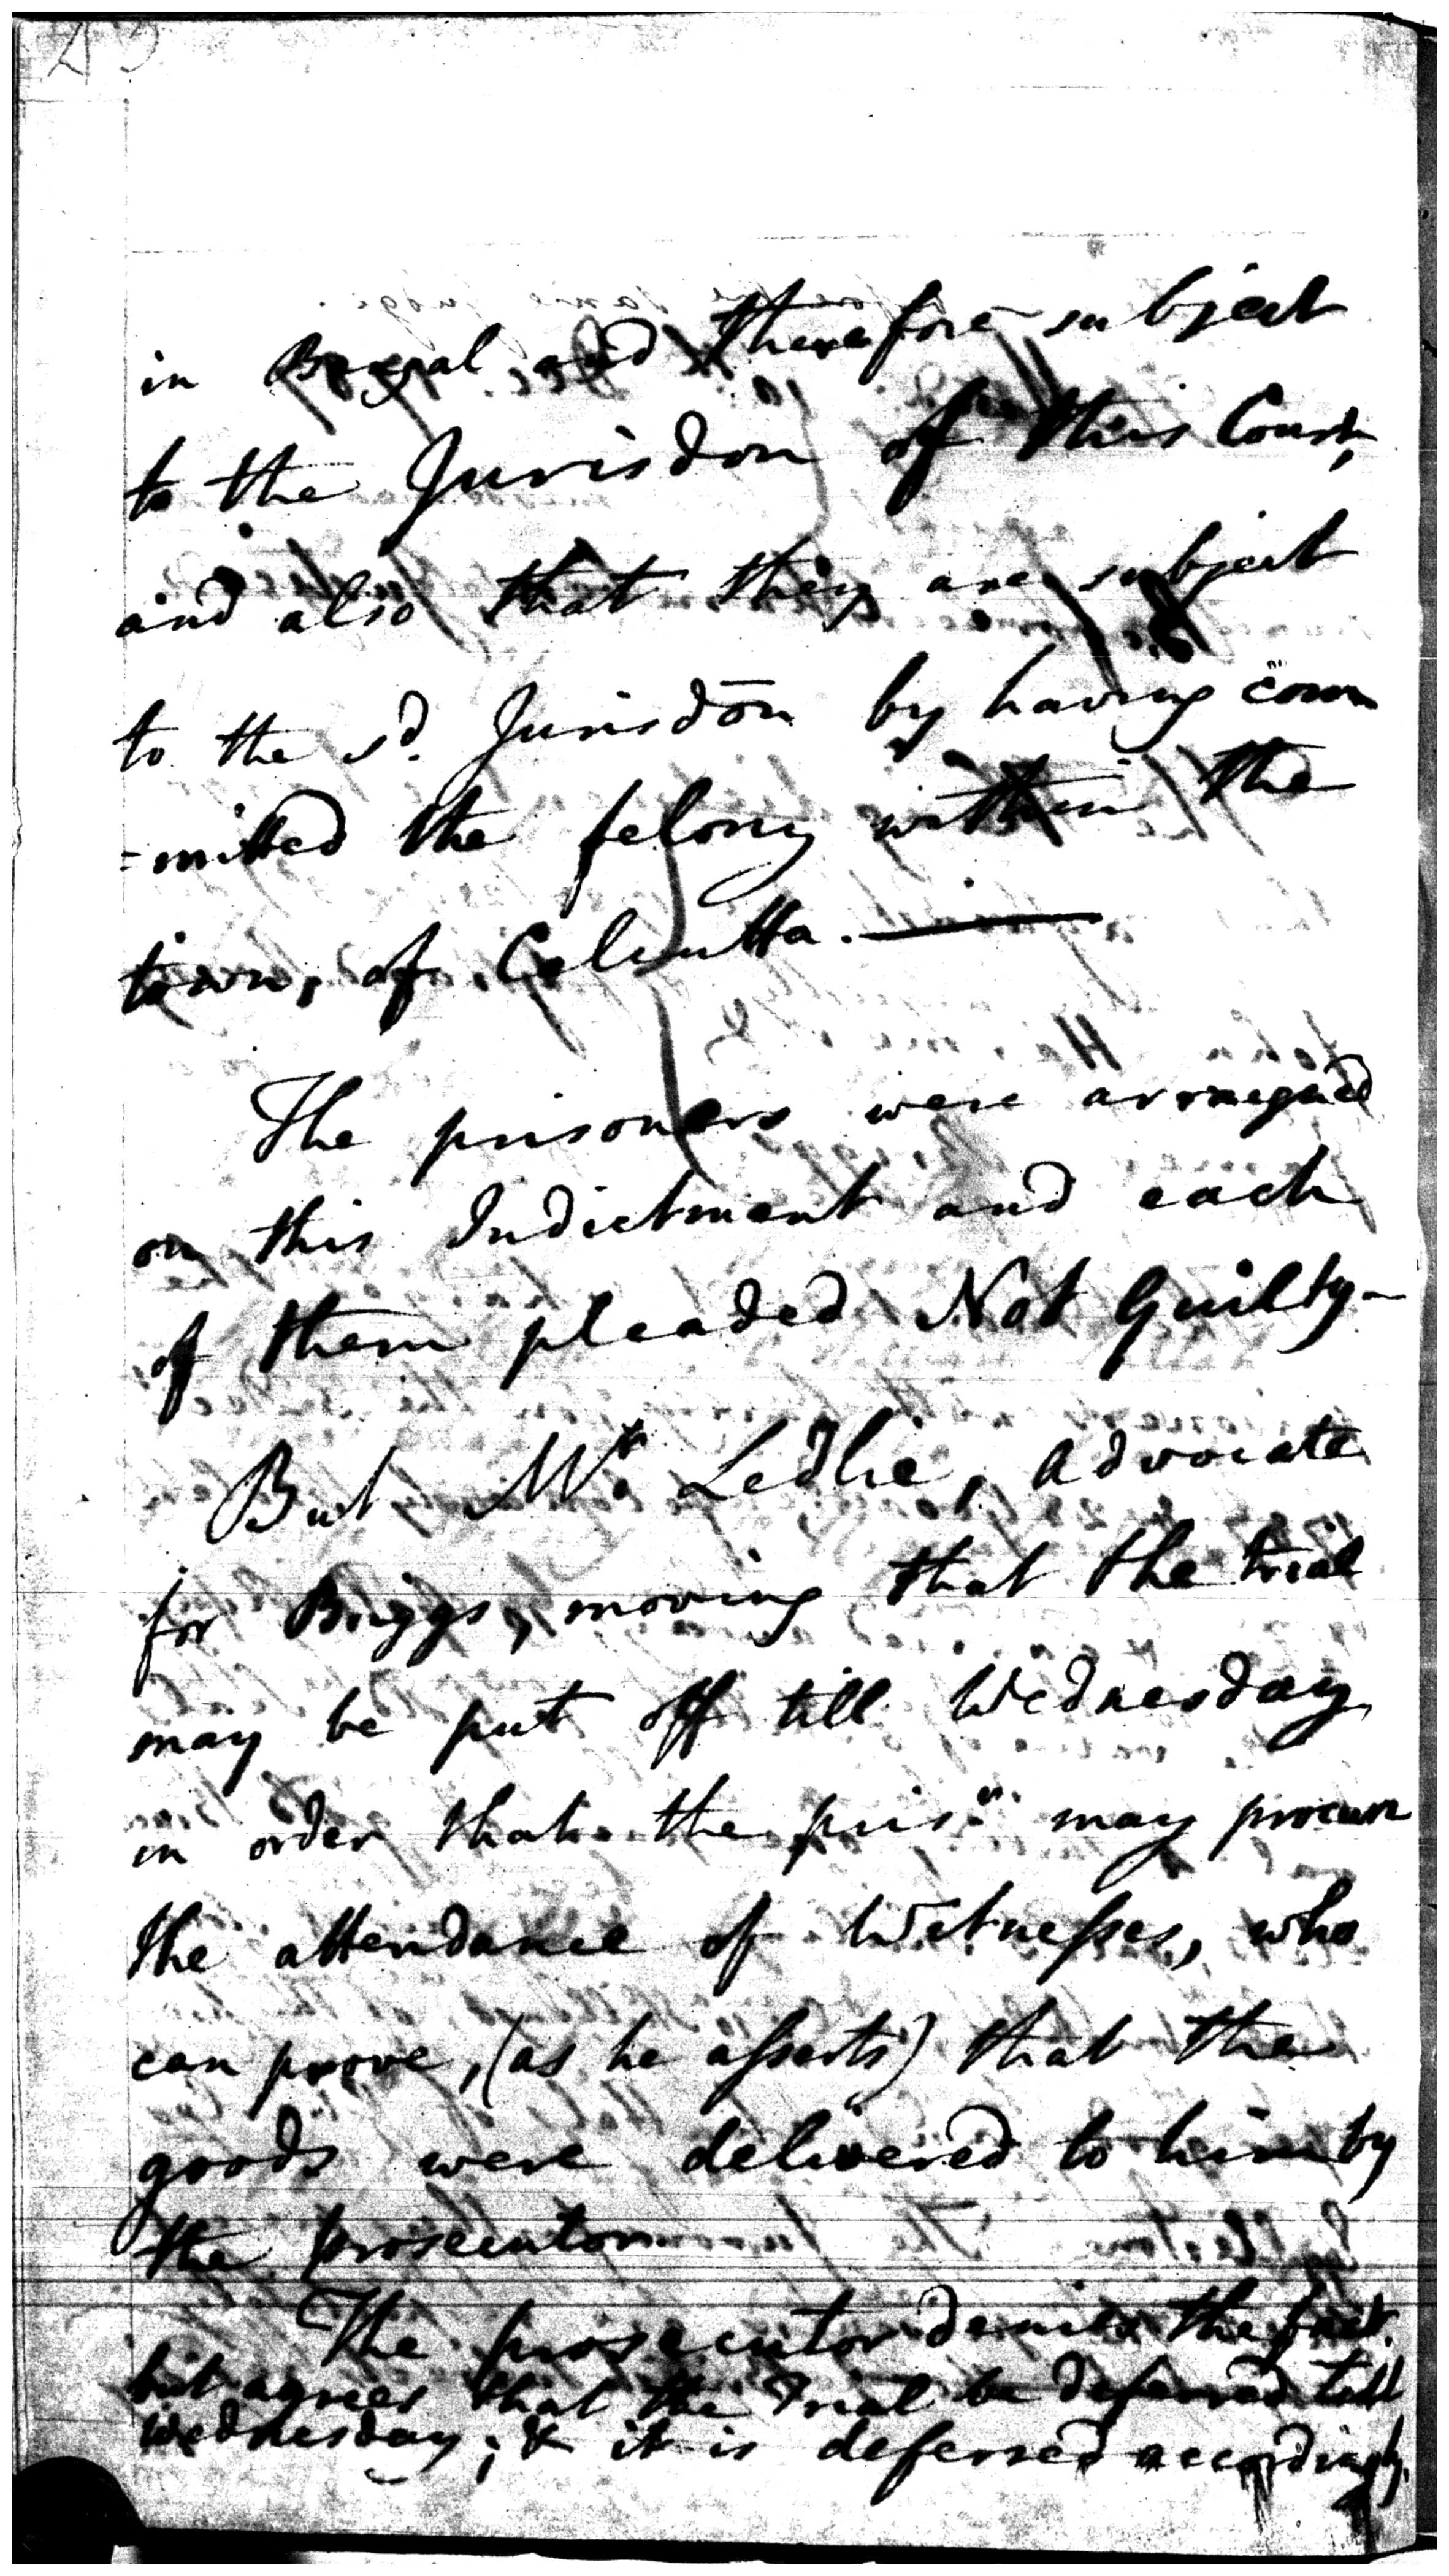 in Bengal and therefore subject
to the Jurisdon of this Court,
and also that they are subject
to the sd. Jurisdōn by having com
=mitted the felony within the
town, of Calcutta.
The prisoners were arraigned
on this Indictment and each
of them pleaded Not Guilty-
But Mr. Ledlie, advocate
for Briggs, moving that the trial
may be put off till Wednesday
in order that the prisr. may procure
the attendance of Witnesses, who
can prove, (as he asserts) that the
goods were delivered to him by
the prosecutor
The prosecutor denies the fact.
but agrees that the Trial be deferred till
Wednesday; & it is deferred accordingly.